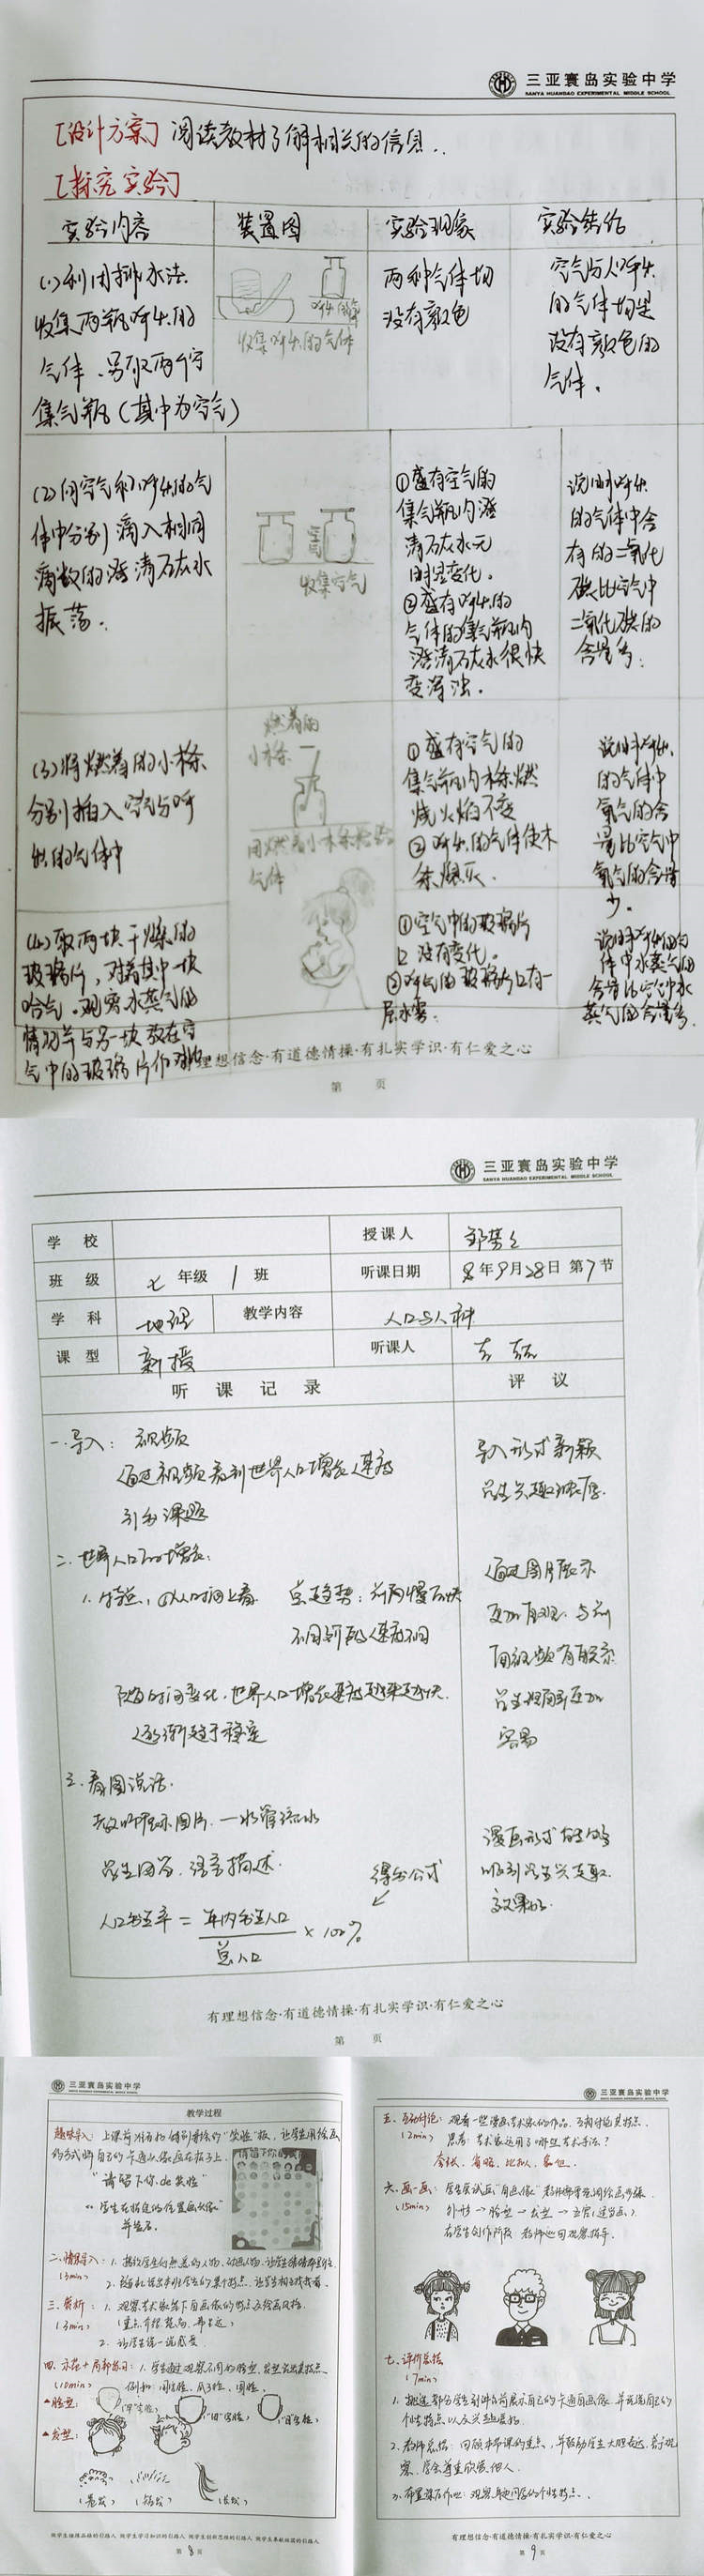 三亚寰岛实验中学
SANYA HUANDAO EXPERIMENTAL MIDDLE SCHOOL
[设计方案] 阅读教材了解相关的信息..
[探究实验]
实验内容 装置图 实验现象 实验结论
(1)利用排水法
收集两瓶呼出的
气体、另取两个空
集气瓶(其中为空气)
呼出的气体
收集呼出的气体
两种气体均
没有颜色
空气与人呼出
的气体均是
没有颜色的
气体.
(2)向空气和呼出的气
体中分别滴入相同
滴数的澄清石灰水
振荡.
收集空气
①盛有空气的
集气瓶内澄
清石灰水无
明显变化.
②盛有呼出的
气体的集气瓶内
澄清石灰水很快
变浑浊.
说明呼出
的气体中含
有的二氧化
碳比空气中
二氧化碳的
含量多;
(3)将燃着的小木条
分别插入空气与呼
出的气体中
燃着的
小木条
用燃着小木条检验
气体
①盛有空气的
集气瓶内木条燃
烧火焰不变
②呼出的气体使木
条熄灭.
说明呼出
的气体中
氧气的含
量比空气中
氧气的含量
少.
(4)取两块干燥的
玻璃片,对着其中一块
哈气.观察水蒸气的
情况并与另一块放在空
气中的玻璃片作对比
①空气中的玻璃片
上没有变化.
②呼气的玻璃片上有一
层水雾.
说明呼出的气
体中水蒸气的
含量比空气中水
蒸气的含量多.
理想信念·有道德情操·有扎实学识·有仁爱之心
第 页
三亚寰岛实验中学
SANYA HUANDAO EXPERIMENTAL MIDDLE SCHOOL
学 校 授课人
班 级 七 年级 1 班 听课日期 年9月28日 第7节
学 科 地理 教学内容 人口与人种
课 型 新授 听课人
听 课 记 录 评 议
一.导入: 视频
通过视频看到世界人口增长速度
引出课题
导入形式新颖
学生兴趣浓厚.
二.世界人口的增长:
1.特点, ①从时间上看 总趋势:前两慢后快
不同阶段速度不同
随时间变化.世界人口增长速度越来越快.
逐渐趋于稳定
通过图片展示
更加直观.与前
面视频有联系
学生理解更加
容易
三.看图说话.
教师展示图片.一水管流水
学生回答.语言描述.
得出公式
人口出生率 = 年内出生人口 × 100%
总人口
漫画形式能够
吸引学生兴趣.
效果好.
有理想信念·有道德情操·有扎实学识·有仁爱之心
第 页
三亚寰岛实验中学
教学过程
趣味导入: 上课前准备好特别香绘的"签到"板,让学生用绘画
的方式将自己的卡通头像画在板子上.
"请留下你de笑脸"
学生在指定的位置画头像
并签名.
二、情境导入: 1.
(3min)
三、赏析: 1.观察艺术家笔下自画像的特点及绘画风格.
(3min)
2.让学生说一说感受
四、示范+局部练习: 1.学生通过观察不同的脸型、发型说出其特点.
(10min) 例如: 圆脸、瓜子脸、国脸.
▲脸型:
▲发型:
(卷发) (短发) (长发)
第 8 页
三亚寰岛实验中学
五、互动讨论: 观看一些漫画艺术家的作品.互相讨论其特点.
(2min) 思考:艺术家运用了哪些艺术手法?
夸张、省略、比拟、象征.
六、画一画: 学生尝试画"自画像" 教师带着强调绘画步骤.
(15min) 外形→脸型→发型→五官(适当画)
在学生创作阶段 教师巡回观察指导.
七、评价总结
(7min)
1.挑选部分学生到讲台前展示自己的卡通自画像.并说说自己的
个性特点以及兴趣爱好.
2.教师总结: 回顾本节课的重点,并鼓励学生大胆表达、善于观
察、学会尊重欣赏他人.
3.布置课后作业:观察身边同学的个性特点.
有理想信念·有道德情操·有扎实学识·有仁爱之心
第 9 页